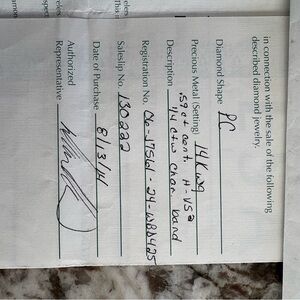 in connection with the sale of the following
described diamond jewelry.
Diamond Shape PC
Precious Metal (Setting) 14K wg
.59 ct cent. H-VS2
Description 1/4 ctw chan band
Registration No. C6-17561-24-WBD425
Saleslip No. 130232
Date of Purchase 8/13/11
Authorized
Representative